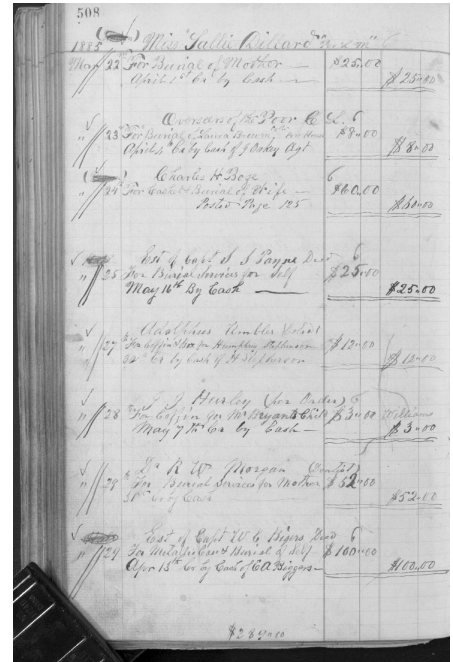 508
1885 Miss Sallie Dillard
May 22 For Burial of Mother — $25.00
April 1st Cr by Cash — $25.00
Overseer of the Poor C. L. 6
" 23 For Burial of Laura Brown $8.00
April 4 Cr by Cash of J Oakey Agt $8.00
Charles H Boze 6
" 24 For Casket & Burial of Wife — $60.00
Posted Page 125 $60.00
Est of Capt S J Payne Decd 6
" 25 For Burial Service for Self $25.00
May 16th By Cash — $25.00
Adolphus Umbles
" 27 For Coffin & Box for $12.00
Cr by Cash of $12.00
Hurley (for Order) 6
" 28 For Coffin for Mr Bryants Child $3.00 Williams
May 7th Cr by Cash — $3.00
Dr R W Morgan (Dentist)
" 28 For Burial Services for Mother $52.00
Cr by Cash $52.00
Est of Capt W C Bigers Decd 6
" 29 For Metallic Case & Burial of Self $100.00
Apr 15th Cr by Cash of C A Biggers — $100.00
$289.00